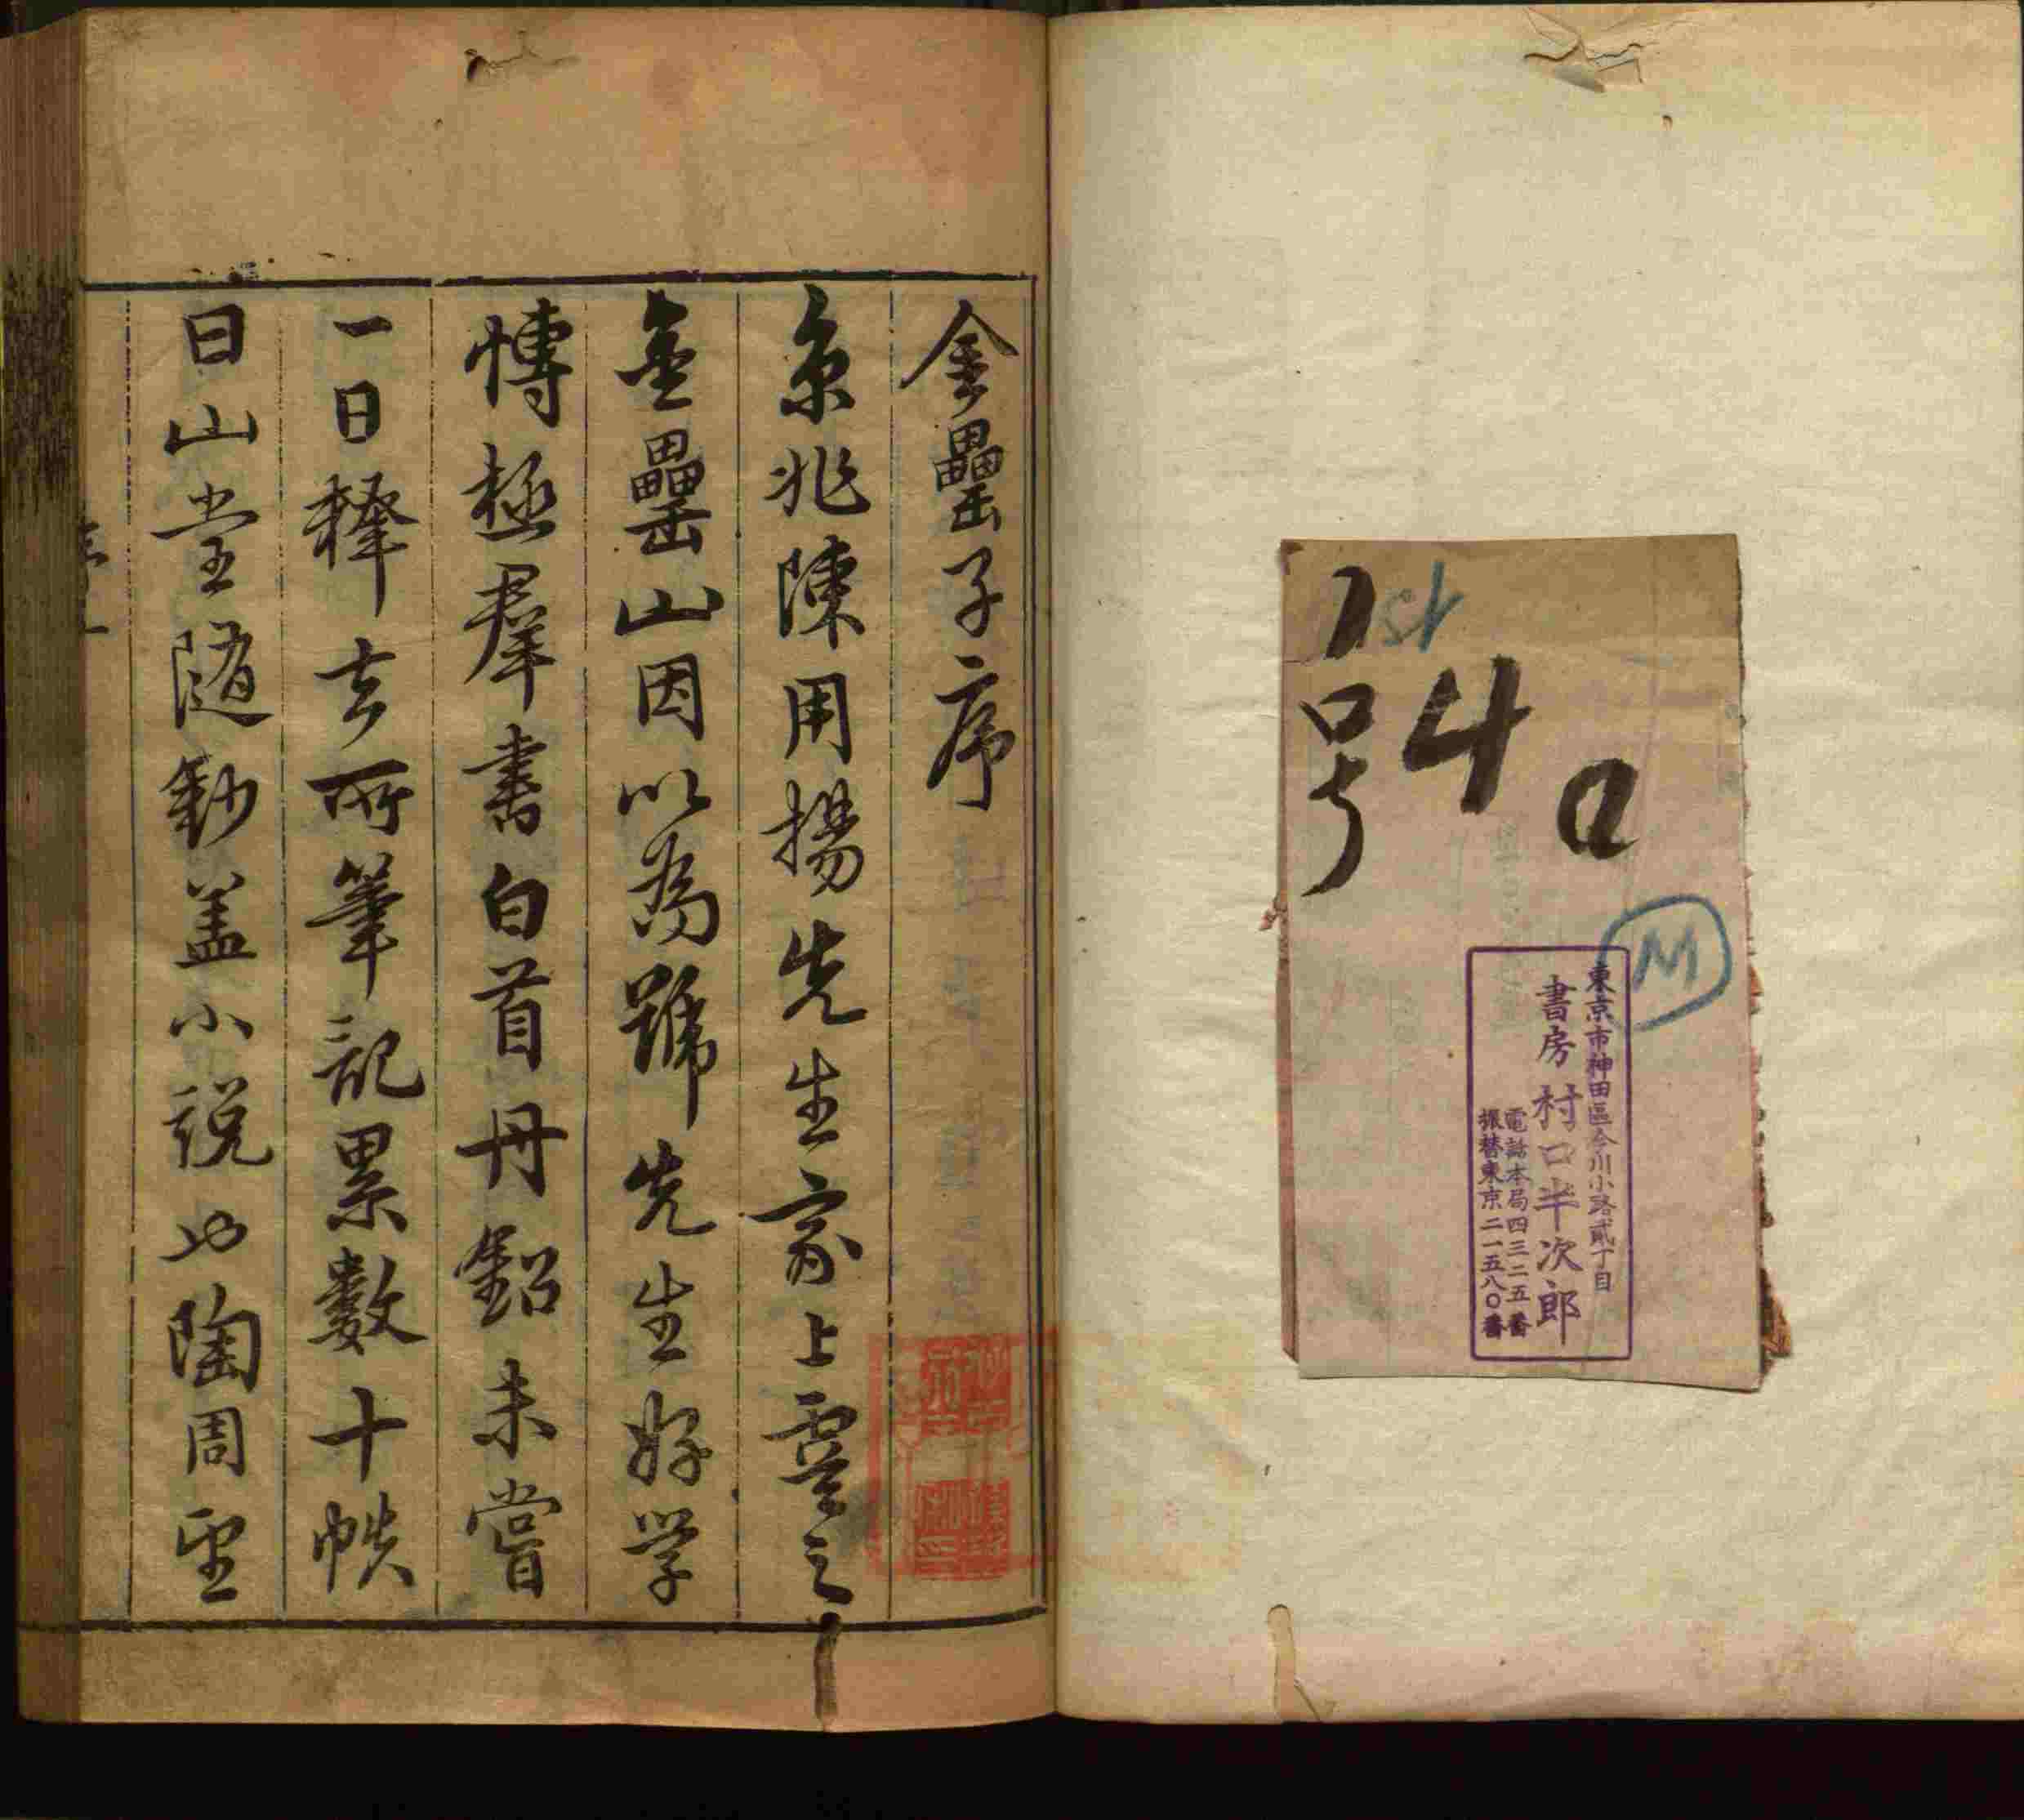 1st
号
40
M
東京市神田區今川小路貳丁目
書房 村口半次郎
電話本局四三二五番
振替東京二一五八〇番
金罍子序
京兆陳用揚先生家上虞之
金罍山因以為號先生好学
博極羣書白首丹鉛未嘗
一日釋去所筆記累数十帙
曰山堂随鈔盖小説也陶周望
序